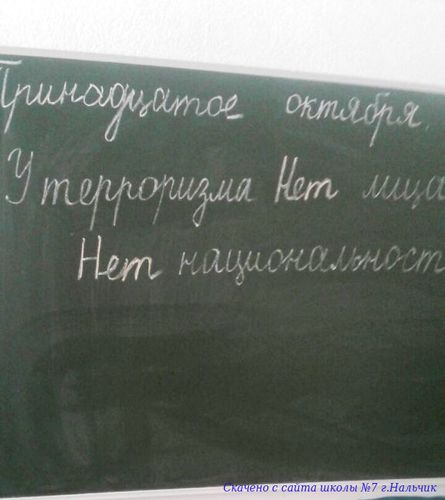 Тринадцатое октября.
У терроризма Нет лица
Нет национальност
Скачено с сайта школы №7 г.Нальчик